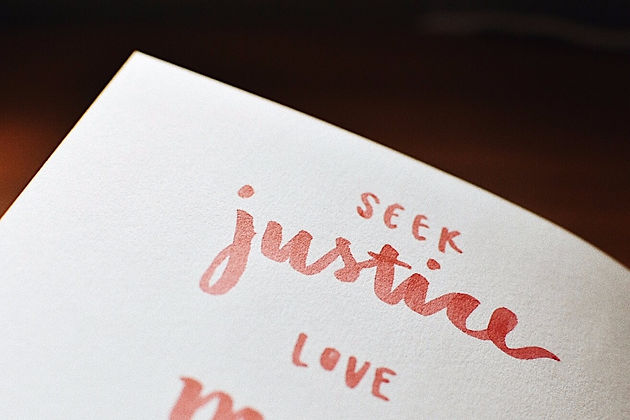 SEEK
justice
LOVE